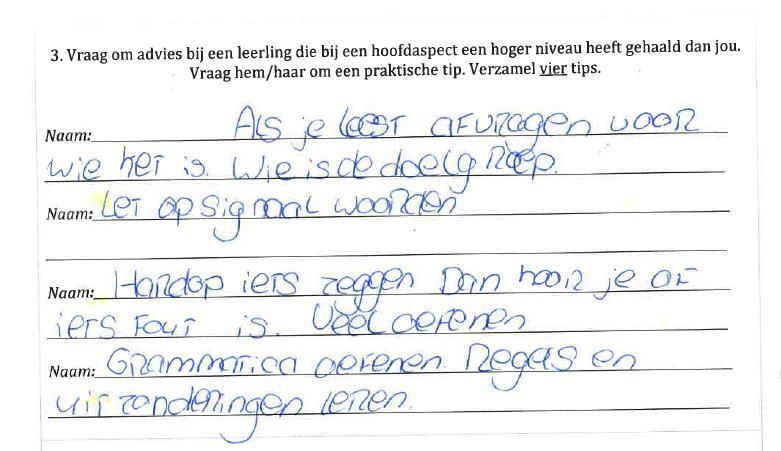 3. Vraag om advies bij een leerling die bij een hoofdaspect een hoger niveau heeft gehaald dan jou.
Vraag hem/haar om een praktische tip. Verzamel vier tips.
Naam: Als je leest afvragen voor
wie het is. Wie is de doelgroep.
Naam: Let op signaal woorden
Naam: Hardop iets zeggen Dan hoor je of
iets fout is. Veel oefenen
Naam: Grammatica oefenen. Regels en
uitzonderingen leren.